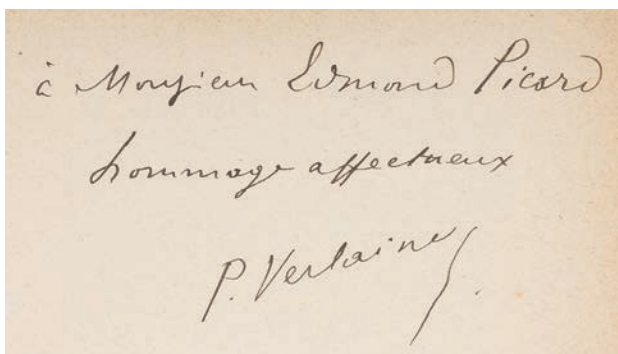 à Monsieur Edmond Picard
hommage affectueux
P. Verlaine